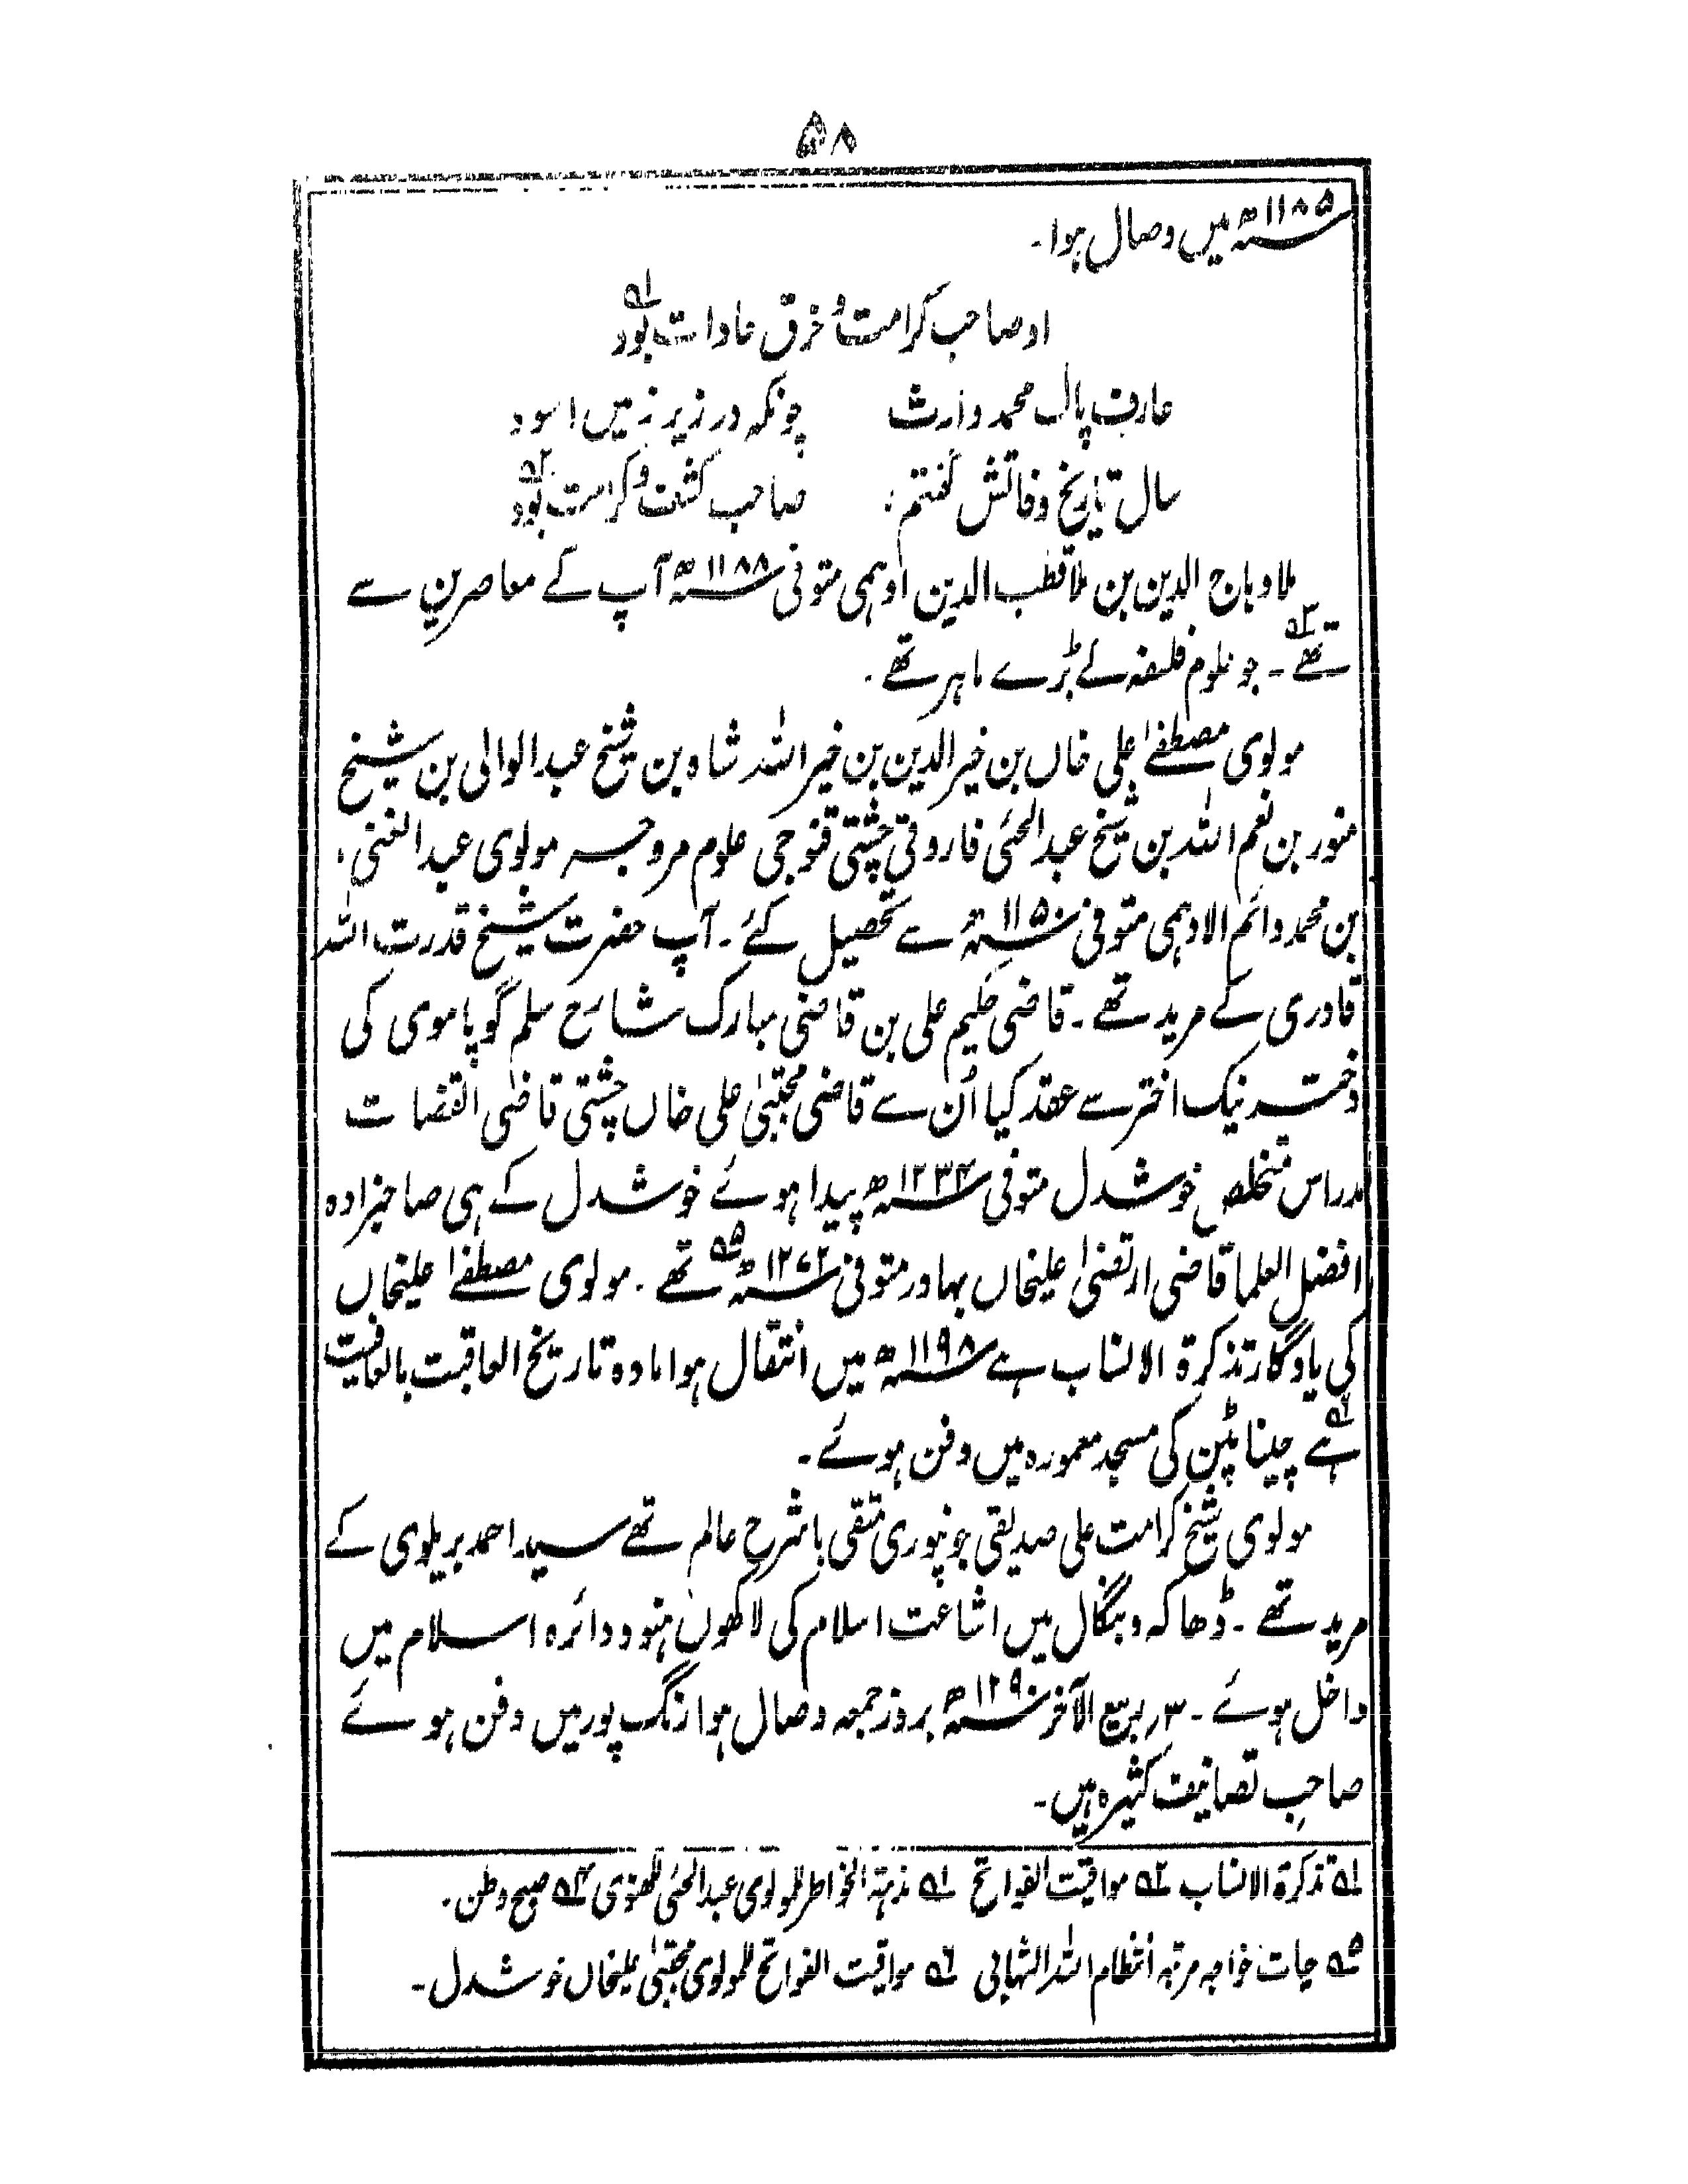 ۵۸
۱۱۸۵ھ میں وصال ہوا۔
او صاحب کرامت و خرق عادات بود ؎۱
عارف پاک محمد وارث چونکہ در زیر زمیں اسود
سال تاریخ وفاتش گفتم: صاحب کشف و کرامت بود ؎۲
ملا وہاج الدین بن ملا قطب الدین اوہمی متوفی ۱۱۸۸ھ آپ کے معاصرین سے
تھے ؎۳۔ جو علوم فلسفہ کے بڑے ماہر تھے۔
مولوی مصطفےٰ علی خاں بن خیر الدین بن خیر اللہ شاہ بن شیخ عبدالوالی بن شیخ
منور بن نعم اللہ بن شیخ عبدالحئی فاروقی چشتی قنوجی علوم مروجہ مولوی عبدالغنی
بن محمد دائم الاوہمی متوفی ۱۱۵۰ھ سے تحصیل کئے۔ آپ حضرت شیخ قدرت اللہ
قادری کے مرید تھے۔ قاضی حکیم علی بن قاضی مبارک شارح سلم گوپاموی کی
دختر نیک اختر سے عقد کیا اُن سے قاضی مجتبیٰ علی خاں چشتی قاضی القضات
مدراس متخلص خوشدل متوفی ۱۲۳۴ھ پیدا ہوئے خوشدل کے ہی صاحبزادہ
افضل العلما قاضی ارتضیٰ علیخاں بہادر متوفی ۱۲۷۲ھ ؎۵ تھے۔ مولوی مصطفےٰ علیخاں
کی یادگار تذکرۃ الانساب ہے ۱۱۹۸ھ میں انتقال ہوا مادہ تاریخ العاقبت بالعافیت
ہے ؎۶ چیناپٹن کی مسجد معمورہ میں دفن ہوئے۔
مولوی شیخ کرامت علی صدیقی جونپوری متقی باشرح عالم تھے سید احمد بریلوی کے
مرید تھے۔ ڈھاکہ و بنگال میں اشاعت اسلام کی لاکھوں ہنود دائرہ اسلام میں
داخل ہوئے۔ ۳؍ ربیع الآخر ۱۲۹۰ھ بروز جمعہ وصال ہوا رنگ پور میں دفن ہوئے
صاحب تصانیف کثیرہ ہیں۔
؎۱ تذکرۃ الانساب ؎۲ مواقیت الفواتح ؎۱ نزہۃ الخواطر لمولوی عبدالحئی لکھنوی ؎۴ صبح وطن۔
؎۵ حیات خواجہ مرتبہ انتظام اللہ الشہابی ؎۶ مواقیت الفواتح لمولوی مجتبیٰ علیخاں خوشدل۔